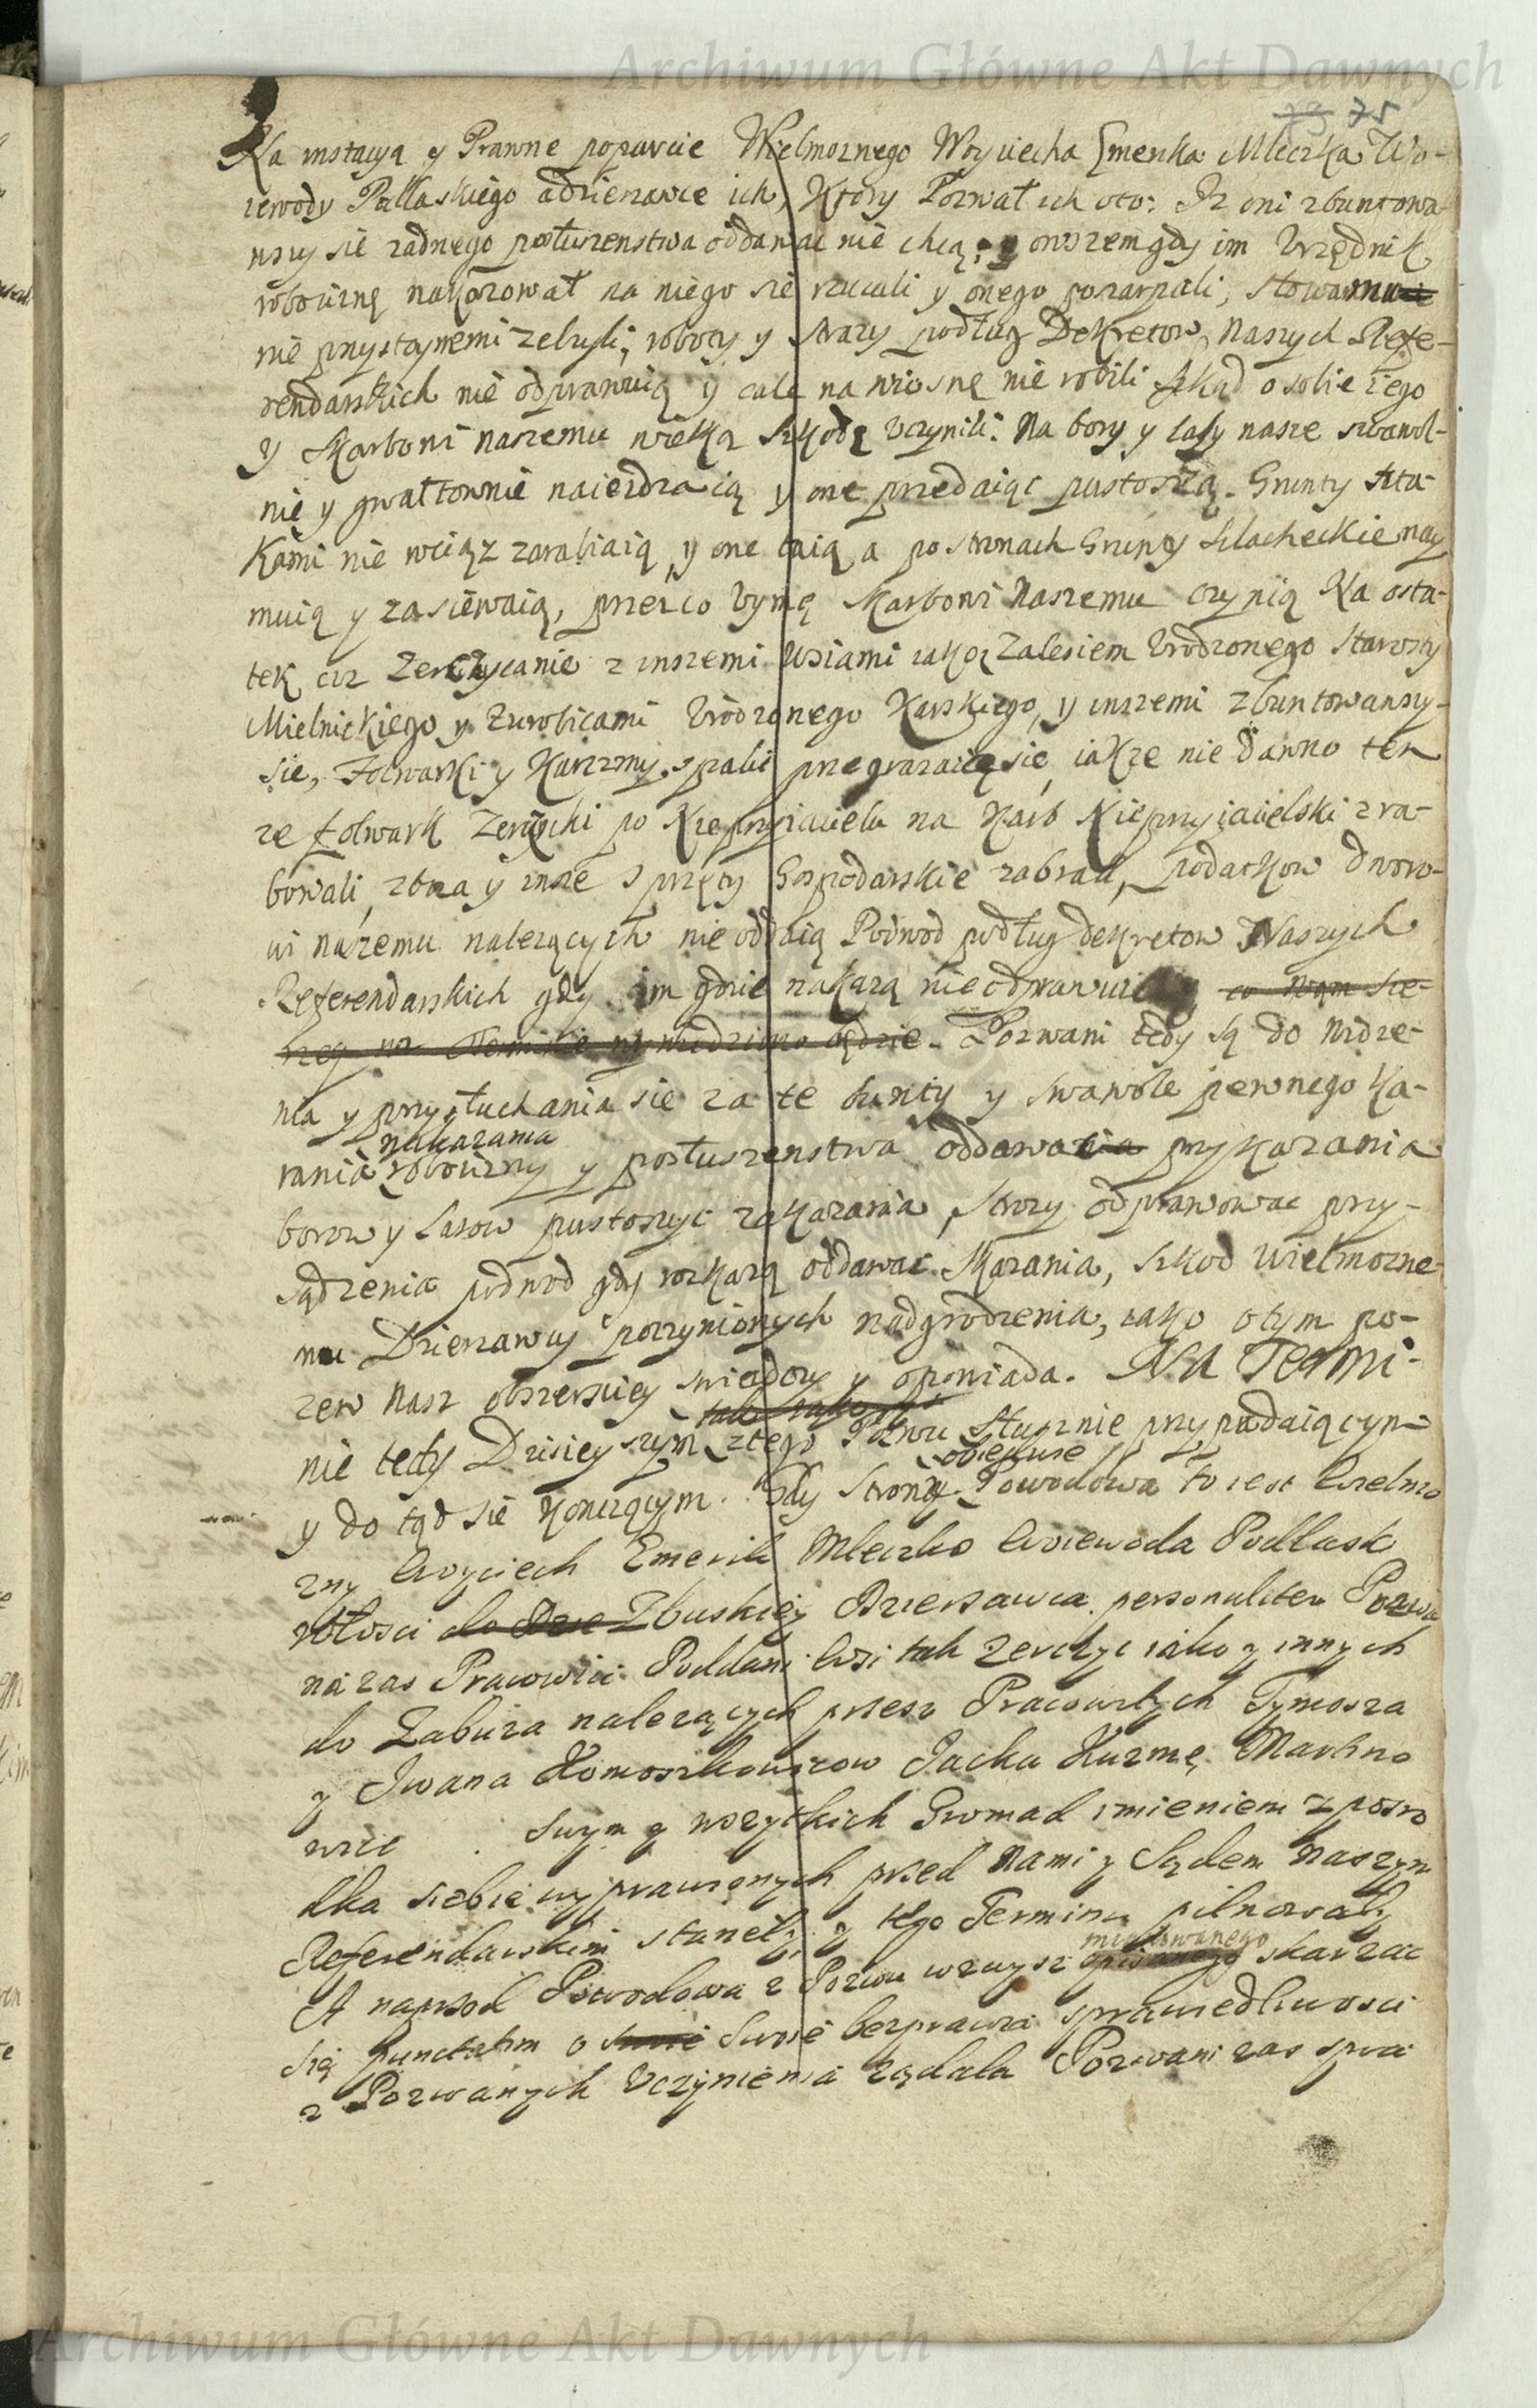 Archiwum Główne Akt Dawnych
73 75
Na instacyą y Prawne poparcie Wielmoznego Woyciecha Emerika Mleczka Wo-
iewody Podlaskiego adzierzawce ich, Ktory Pozwał ich oto: Iz oni zbuntowa-
wszy sie zadnego posłuszenstwa oddawac nie chcą; y owszem gdy im Vrzędnik
robociznę nakazował na niego sie rzucali y onego poszarpali, słowami
nie przystoynemi zelzyli; roboty y strazy podług Dekretow Naszych Refe-
rendarskich nie odprawuią y cale na wiosnę nie robili skąd osobie iego
y Skarbowi naszemu wielką szkodę vczynili. Na bory y lasy nasze swawol-
nie y gwałtownie naiezdzaią y one przedaiąc pustoszą. Grunty sztu-
kami nie wciąz zarabiaią y one taią a po stronach Grunty Szlacheckie nay-
muią y zasiewaią, przez co vymę Skarbowi Naszemu czynią Na osta-
tek ciz Zerczycanie z inszemi Wsiami iako z Zalesiem Vrodzonego Starosty
Mielnickiego y Zurobicami Vrodzonego Karskiego, y inszemi zbuntowawszy-
sie, Folwarki y Karczmy spalic przegrazaią sie, iakze nie dawno ten
ze folwark Zerczycki po Nieprzyiacielu na Karb Nieprzyiacielski zra-
bowali, zboza y insze sprzęty Gospodarskie zabrali, podatkow dworo-
wi naszemu nalezących nie oddaią Podwod podług dekretow Naszych
Referendarskich gdy im gdzie nakazą nie odprawuią co wam sie-
rzey na Terminie wywiedziono będzie. Pozwani tedy są do widze-
nia y przysłuchania sie za te bunty y swawole pewnego Ka-
nakazania
rania robocizny y posłuszenstwa oddawania przykazania
borow y Lasow pustoszyc zakazania, Strozy odprawowac przy-
sądzenia podwod gdy rozkazą oddawac Skazania, szkod Wielmozne-
mu Dzierzawcy poczynionych nadgrodzenia, iako o tym po-
zew Nasz obszerniey swiadczy y opowiada. NA Termi-
nie tedy Dzisieyszym z tego Pozwu słusznie przypadaiącym
obiedwie
y do tąd sie konczącym. Gdy Strony Powodowa to iest Wielmo
zny Woyciech Emerik Mleczko Woiewoda Podlask
włosci do Zbuskiey Dzierzawca personaliter Pozwa
na zas Pracowici Poddani Wsi tak Zerczyc iako y innych
do Zabuza nalezących przez Pracowitych Tymosza
y Iwana Chomoszkowiczow Jacka Kuzmę Martino
wicz swym y wszytkich Gromad imieniem z posro
dka siebie wyprawionych przed Nami y Sądem Naszym
Referendarskim stanęły y tego Terminu pilnowały
mianowanego
A naprzod Powodowa z Pozwu wzwysz opisanego skarząc
się punctatim o swoie bezprawia sprawiedliwosci
z Pozwanych Vczynienia ządała Pozwani zas spra
Archiwum Główne Akt Dawnych